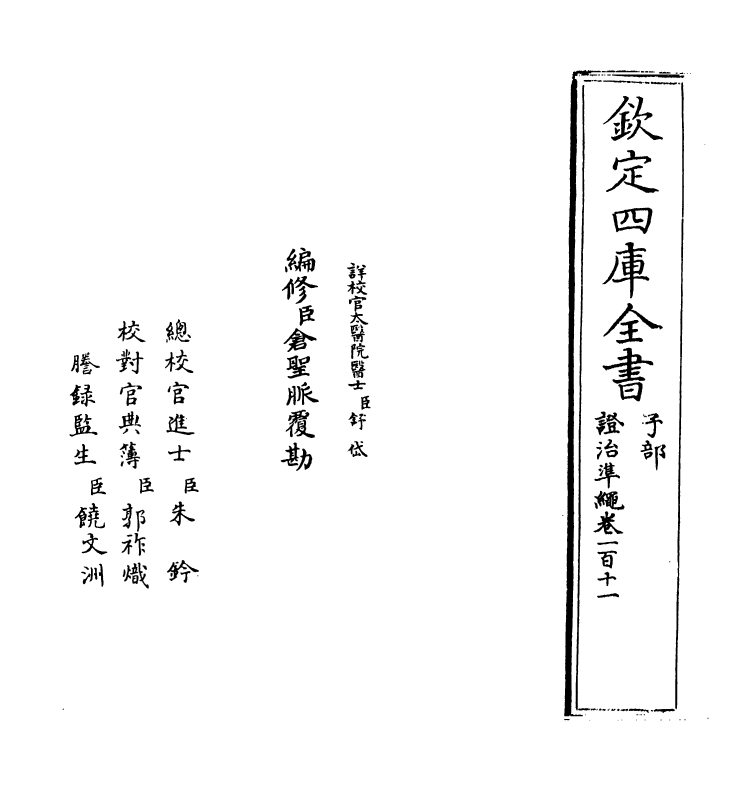 欽定四庫全書
子部
證治準繩卷一百十一
詳校官太醫院醫士臣舒岱
編修臣倉聖脈覆勘
總校官進士臣朱鈐
校對官典簿臣郭祚熾
謄錄監生臣饒文洲